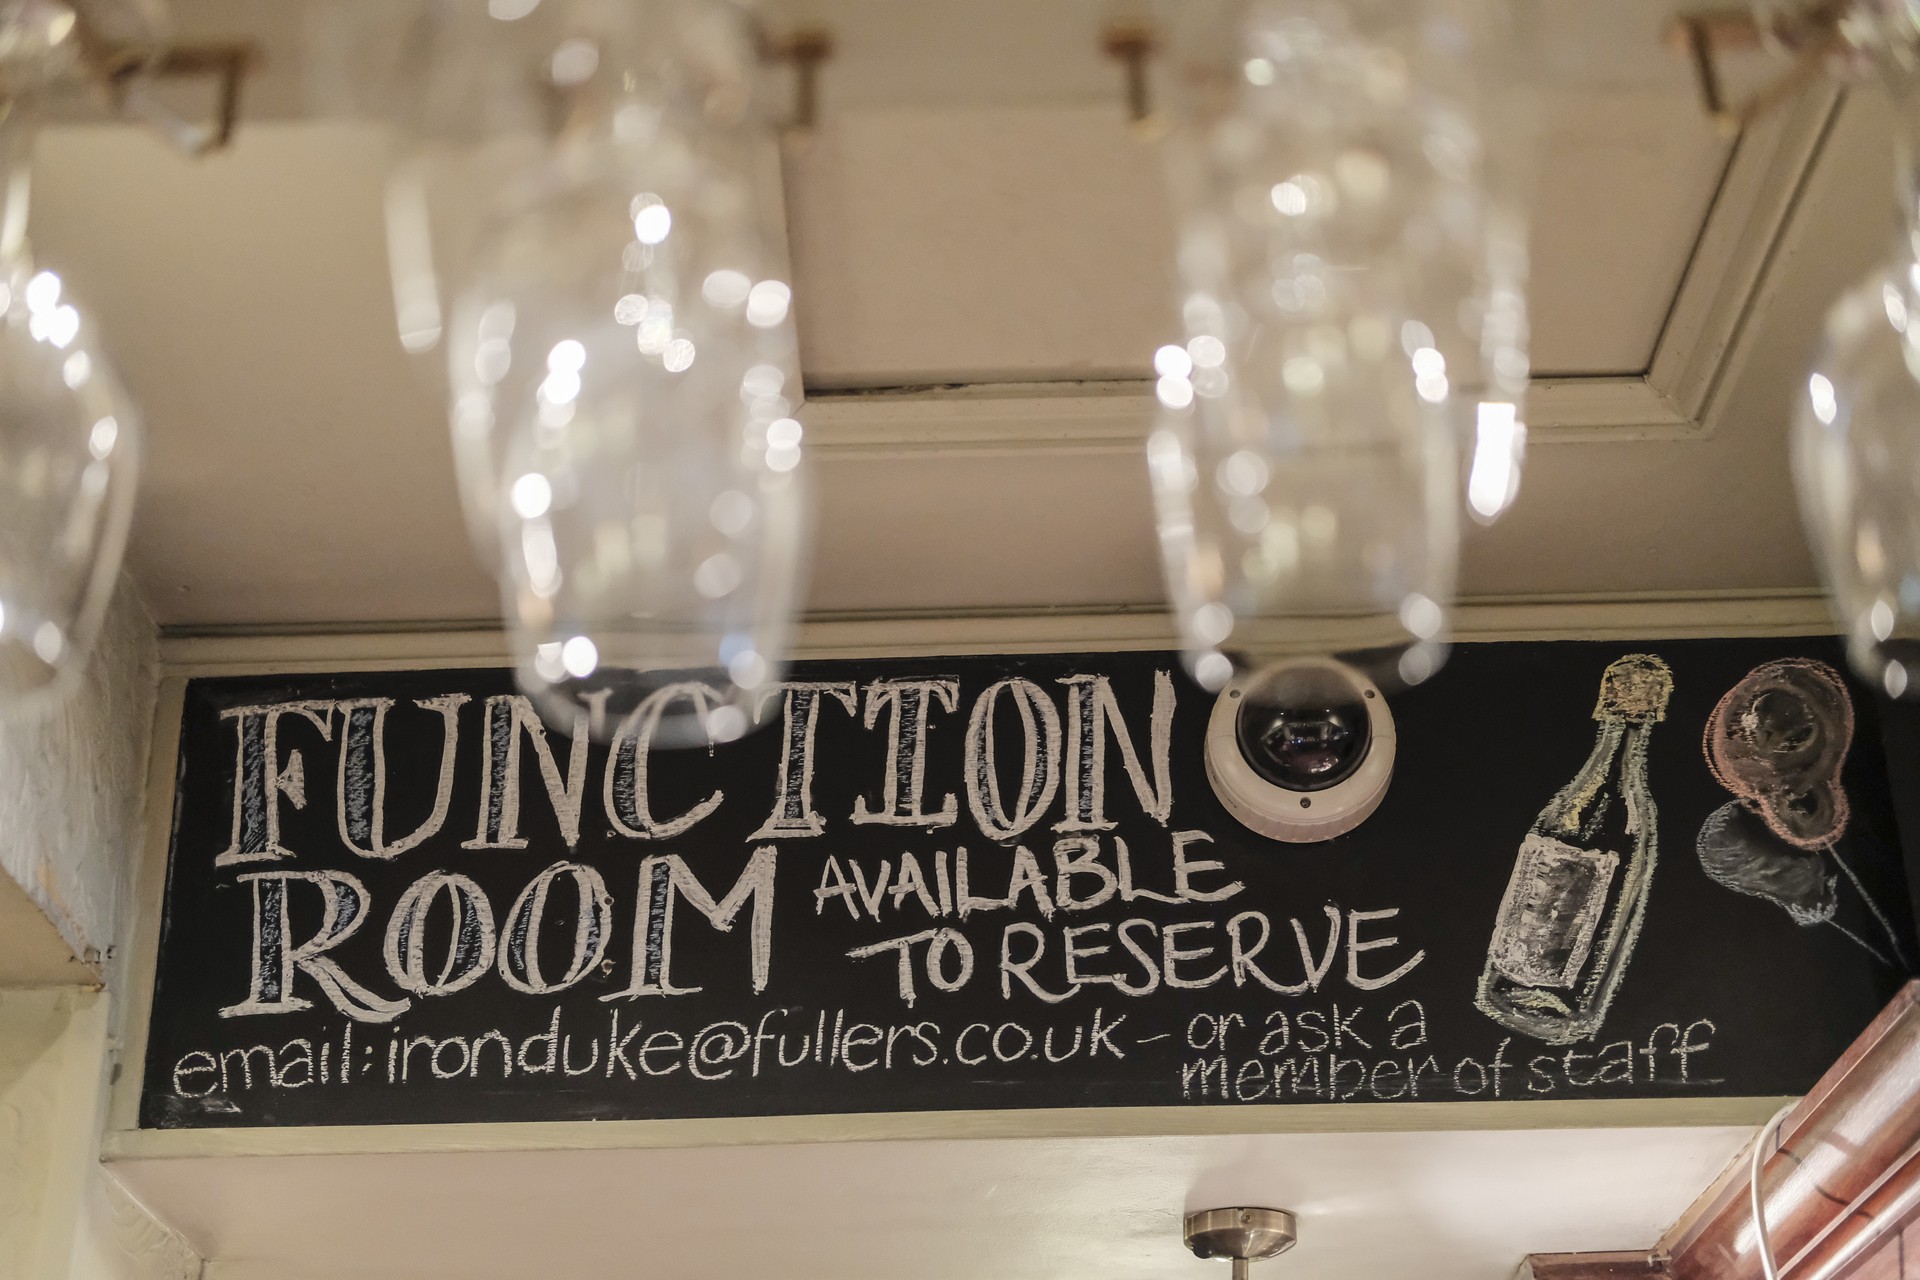 FUNCTION
ROOM AVAILABLE
TO RESERVE
email: ironduke@fullers.co.uk - or ask a
member of staff